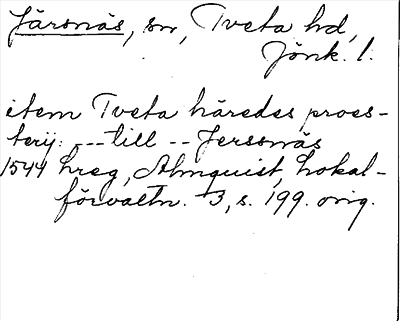 Järsnäs, sn, Tveta hd,
Jönk. l.
item Tveta häredes proes-
terij: --- till -- Jerssnäs
1544 hreg, Almquist, Lokal-
förvaltn. 3, s. 199. orig.